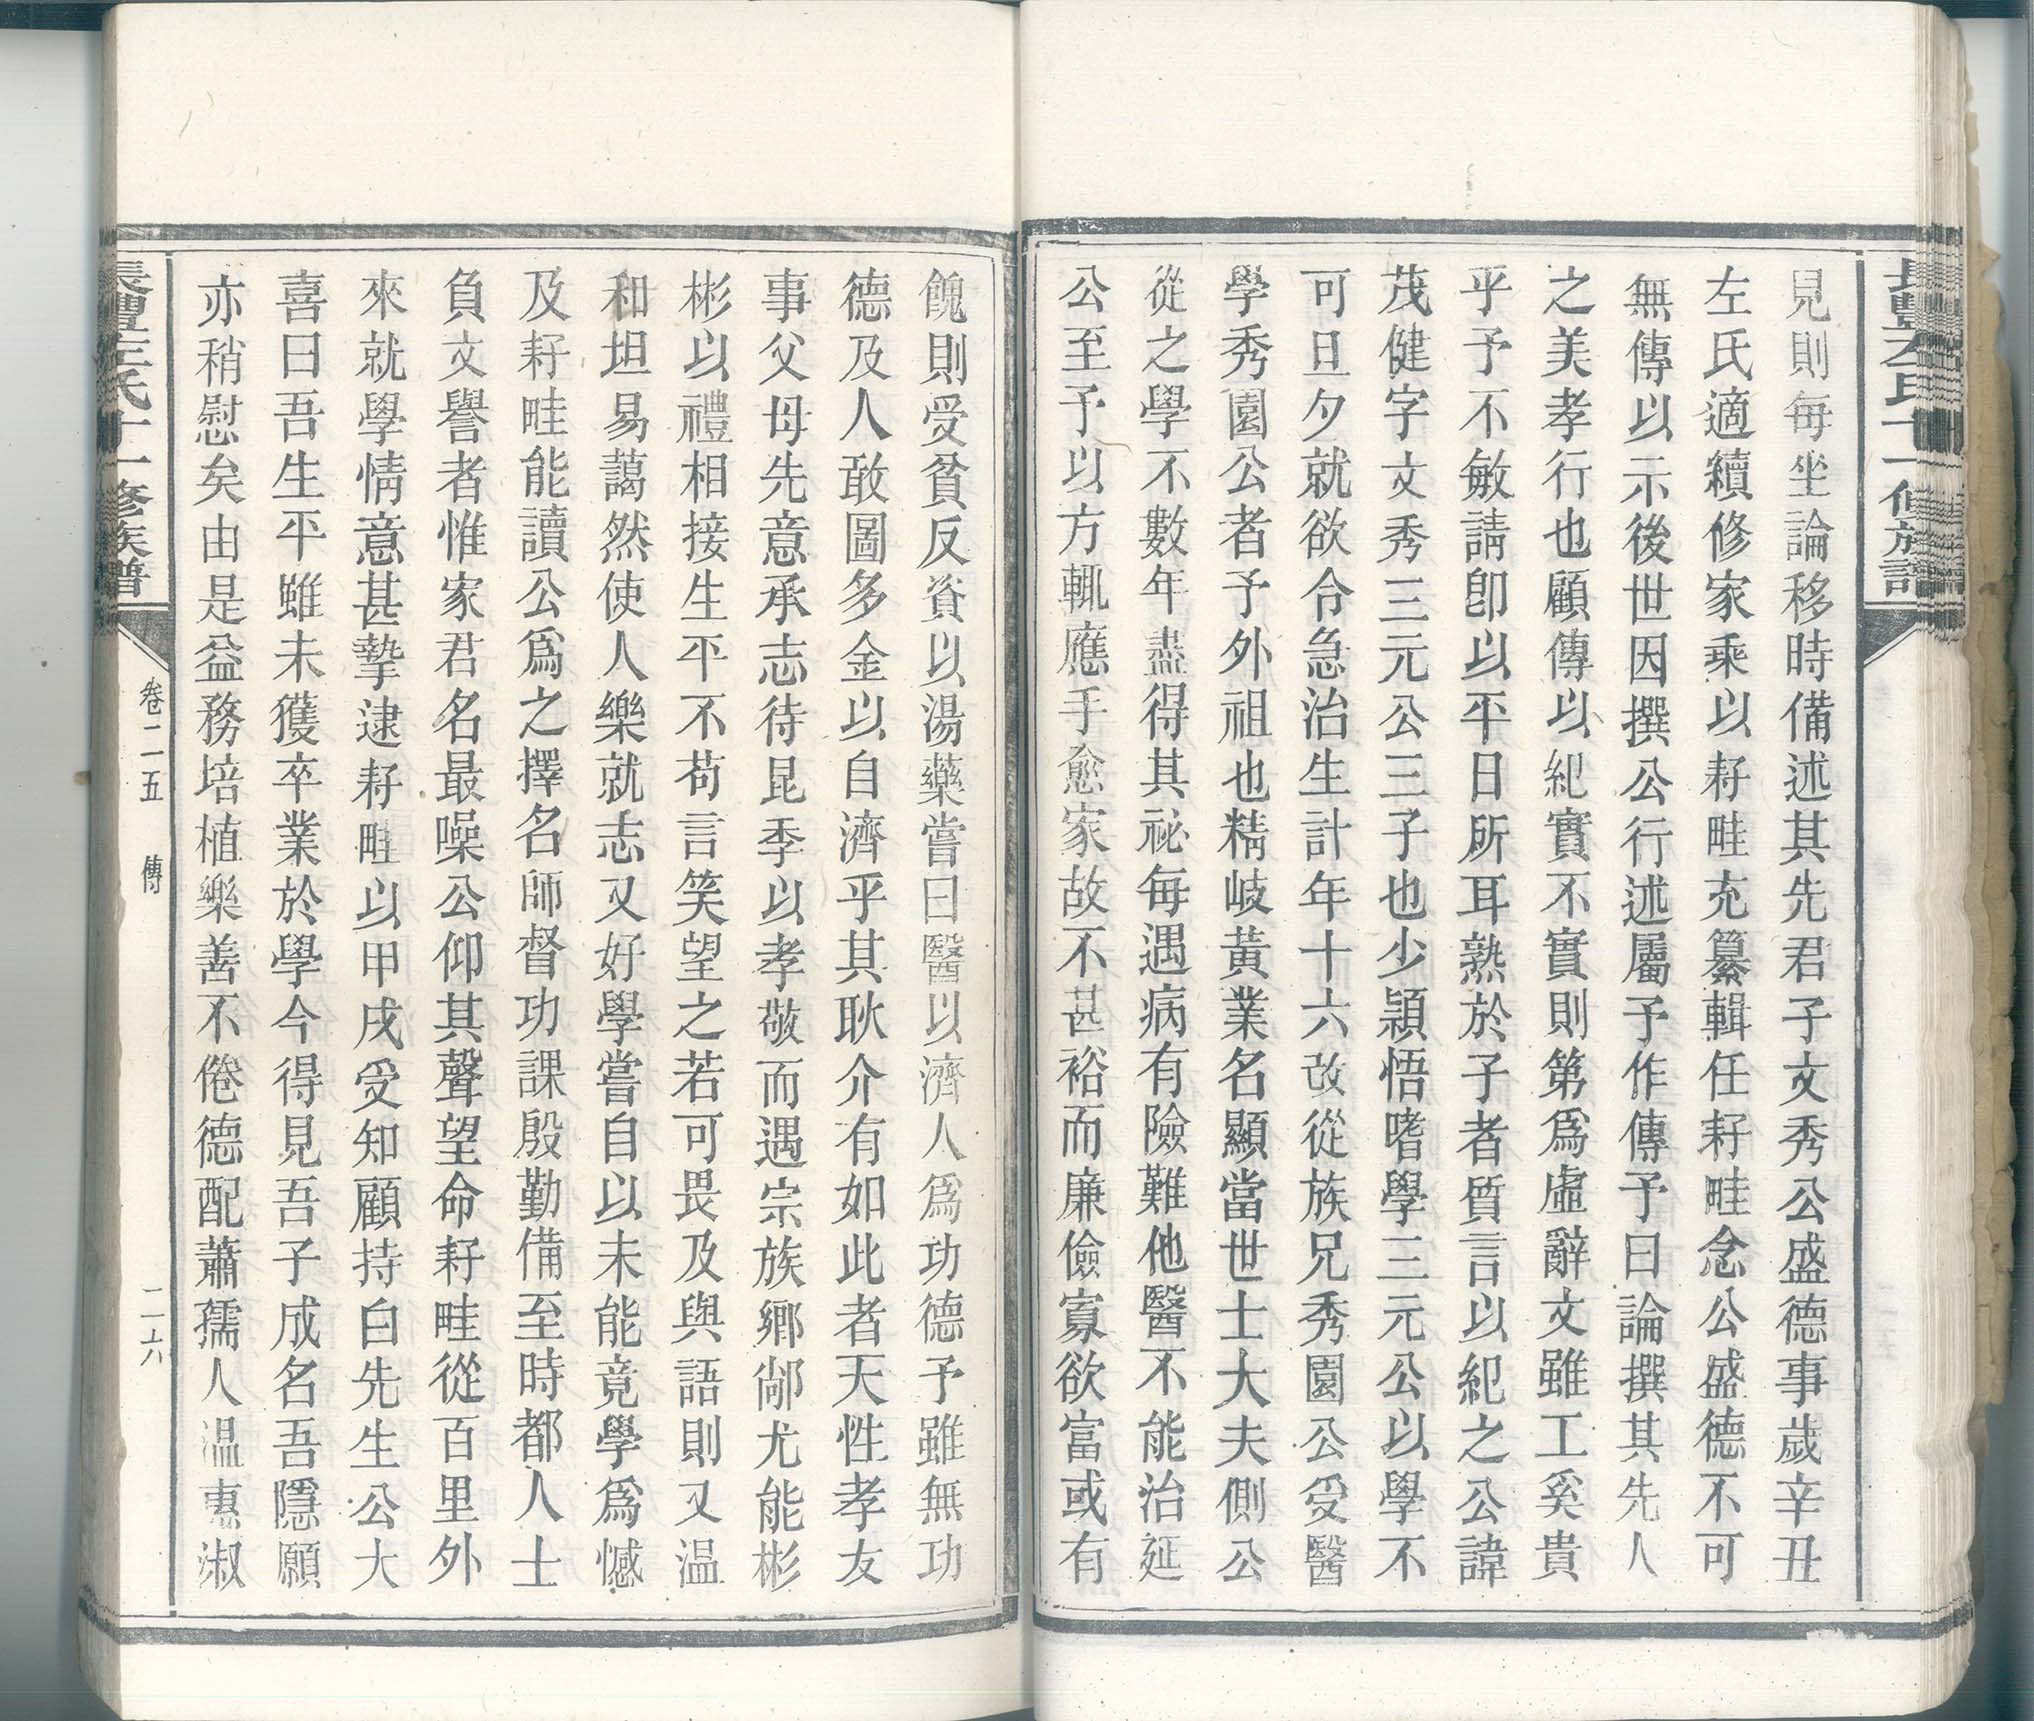 長豐左氏十一修族譜
見則每坐論移時備述其先君子文秀公盛德事歲辛丑
左氏適續修家乘以耔畦充纂輯任耔畦念公盛德不可
無傳以示後世因撰公行述屬予作傳予曰論撰其先人
之美孝行也顧傳以紀實不實則第為虛辭文雖工奚貴
乎予不敏請卽以平日所耳熟於子者質言以紀之公諱
茂健字文秀三元公三子也少穎悟嗜學三元公以學不
可旦夕就欲令急治生計年十六改從族兄秀園公受醫
學秀園公者予外祖也精岐黃業名顯當世士大夫側公
從之學不數年盡得其祕每遇病有險難他醫不能治延
公至予以方輒應手愈家故不甚裕而廉儉寡欲富或有
餽則受貧反資以湯藥嘗曰醫以濟人為功德予雖無功
德及人敢圖多金以自濟乎其耿介有如此者天性孝友
事父母先意承志待昆季以孝敬而遇宗族鄉鄰尤能彬
彬以禮相接生平不苟言笑望之若可畏及與語則又溫
和坦易藹然使人樂就志又好學嘗自以未能竟學為憾
及耔畦能讀公為之擇名師督功課殷勤備至時都人士
負文譽者惟家君名最噪公仰其聲望命耔畦從百里外
來就學情意甚摯逮耔畦以甲戌受知顧持白先生公大
喜曰吾生平雖未獲卒業於學今得見吾子成名吾隱願
亦稍慰矣由是益務培植樂善不倦德配蕭孺人溫惠淑
長豐左氏十一修族譜
卷二五 傳 二六